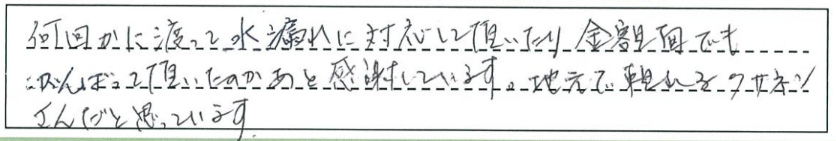 何回かに渡って水漏れに対応して頂いたり金額面でも
がんばって頂いたのかあと感謝しています。地元で頼れるクサネン
さんだと思っています